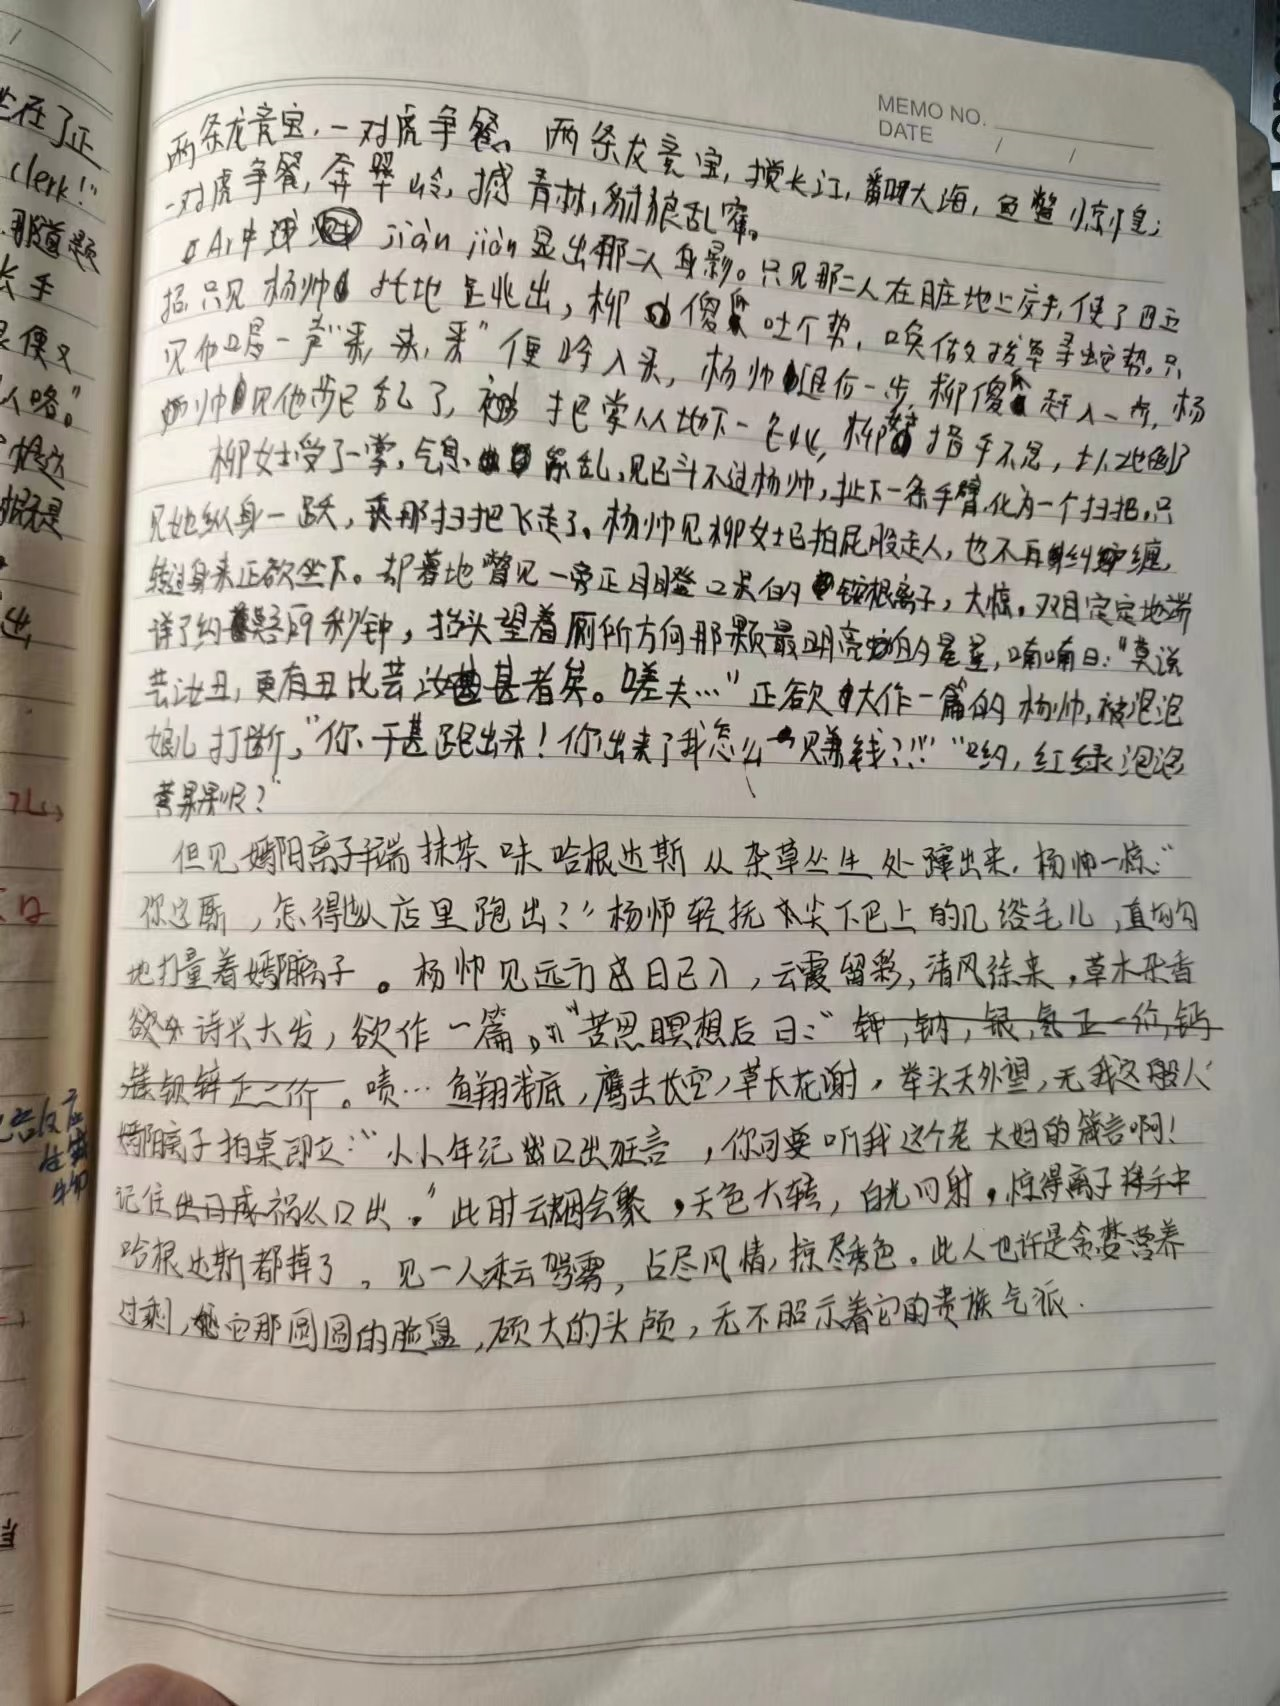 MEMO NO.
DATE / /
坐在了正
clerk!"
那道题
长手
便又
人咯。"
两条龙竞宝,一对虎争餐。两条龙竞宝,搅长江,翻大海,鱼鳖惊惶;
一对虎争餐,奔翠岭,撼青林,豺狼乱窜。
Ar中 jiàn jiàn 显出那二人身影。只见那二人在脏地上交手,使了四五
招只见杨帅 托地 出,柳 傻 吐个势,唤做拨草寻蛇势。只
见他喝一声"来,来,来"便 入来,杨帅退后一步,柳傻 赶入一步,杨
帅见他步已乱了, 把掌从地下一 ,柳 措手不及,
柳女士受了一掌,气息 紊乱,见已斗不过杨帅,扯下一条手臂,化为一个扫把。只
见她纵身一跃,乘那扫把飞走了。杨帅见柳女士已拍屁股走人,也不再纠缠,
转过身来正欲坐下。却蓦地瞥见一旁正目瞪口呆的铵根离子,大惊。双目定定地端
详了约 秒钟,抬头望着厕所方向那颗最明亮的星星,喃喃曰:"莫说
芸汝丑,更有丑比芸汝甚者矣。嗟夫…"正欲大作一篇的杨帅,被泡泡
娘儿打断,"你干甚跑出来!你出来了我怎么赚钱?!""哟,红绿泡泡
黄果果呢?"
但见嫣阳离子端抹茶味哈根达斯从杂草丛生处蹿出来.杨帅一惊:"
你这厮,怎得从店里跑出?"杨帅轻抚尖下巴上的几绺毛儿,直勾勾
地打量着嫣阳离子。杨帅见远方日已入,云霞留彩,清风徐来,草木杂香
欲 诗兴大发,欲作一篇,"苦思瞑想后曰:"钾,钠,银,氢正一价,钙
镁钡锌正二价。啧…鱼翔浅底,鹰击长空,草长花谢,举头天外望,无我这般人"
嫣阳离子拍桌即立:"小小年纪出口出狂言,你可要听我这个老大妈的箴言啊!
记住出日成祸从口出."此时云烟会聚,天色大转,白光四射,惊得离子将手中
哈根达斯都掉了。见一人乘云驾雾,占尽风情,掠尽秀色。此人也许是贪婪营养
过剩,它那圆圆的脸盘,硕大的头颅,无不昭示着它的贵族气派.